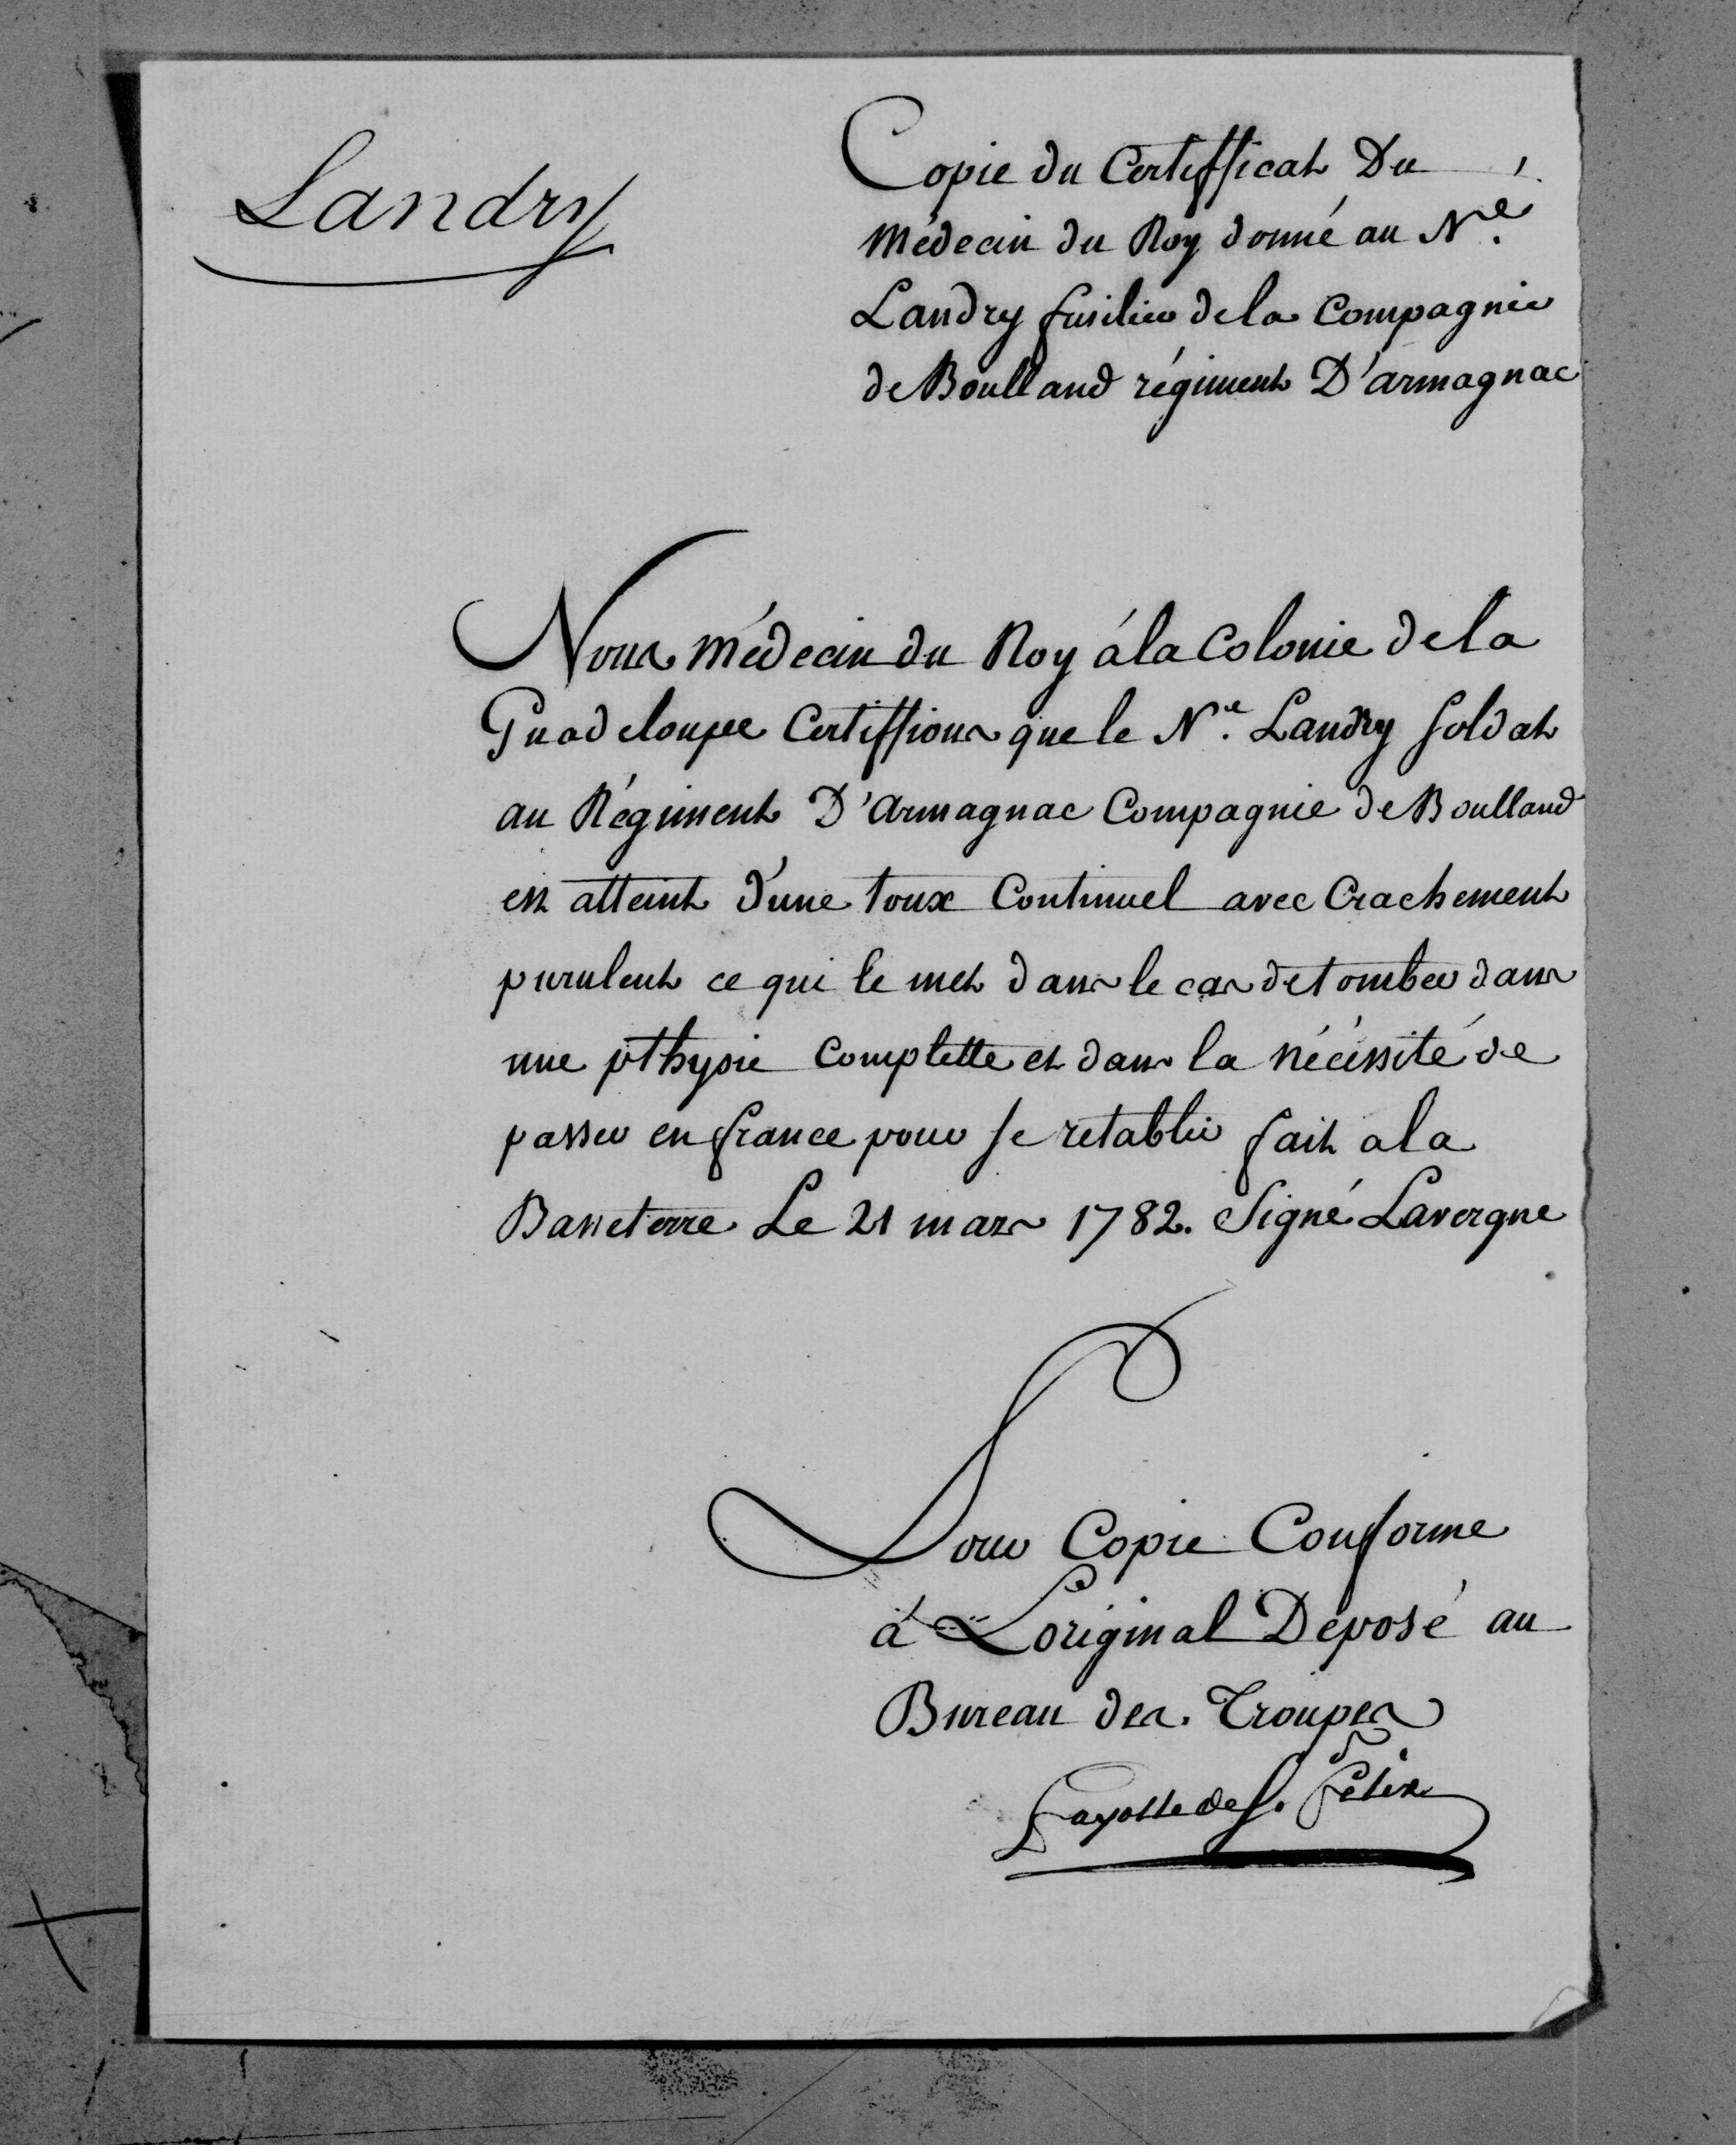 Landry
Copie du Certifficat Du
Médecin du Roy donné au N.é
Landry fusilier de la Compagnie
de Boulland régiment D'armagnac
Nous Médecin du Roy á la Colonie de la
Guadeloupe Certiffions que le N.é Landry soldat
au Régiment D'Armagnac Compagnie de Boulland
est atteint d'une toux Continuel avec Crachement
purulent ce qui le met dans le cas de tomber dans
une pthysie Complette et dans la nécéssité de
passer en france pour se retablir fait a la
Basseterre Le 21 mars 1782. Signé Lavergne
Pour Copie Conforme
á L'original Déposé au
Bureau des Troupes
Fayolle de S. Félix